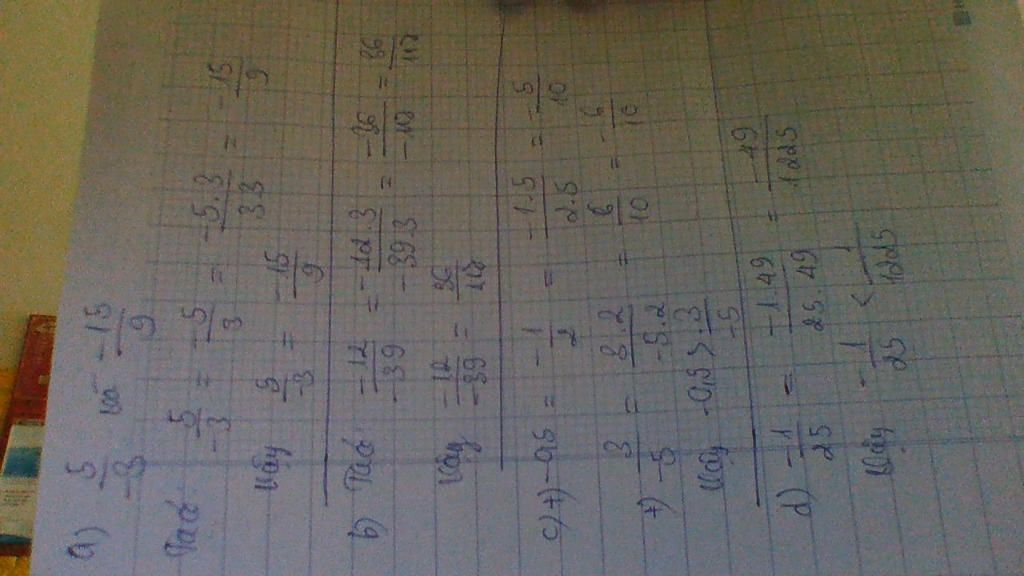 a) 5/-3 và -15/9
Ta có 5/-3 = -5/3 = -5.3/33 = -15/9
Vậy 5/-3 = -15/9
b) Ta có -12/-39 = -12.3/-39.3 = -36/-117 = 36/117
Vậy -12/-39 = 36/117
c) +) -0,5 = -1/2 = -1.5/2.5 = -5/10
+) 3/-5 = 3.2/-5.2 = 6/10 = -6/10
Vậy -0,5 > 3/-5
d) -1/25 = -1.49/25.49 = -49/1225
Vậy -1/25 < -1/1225